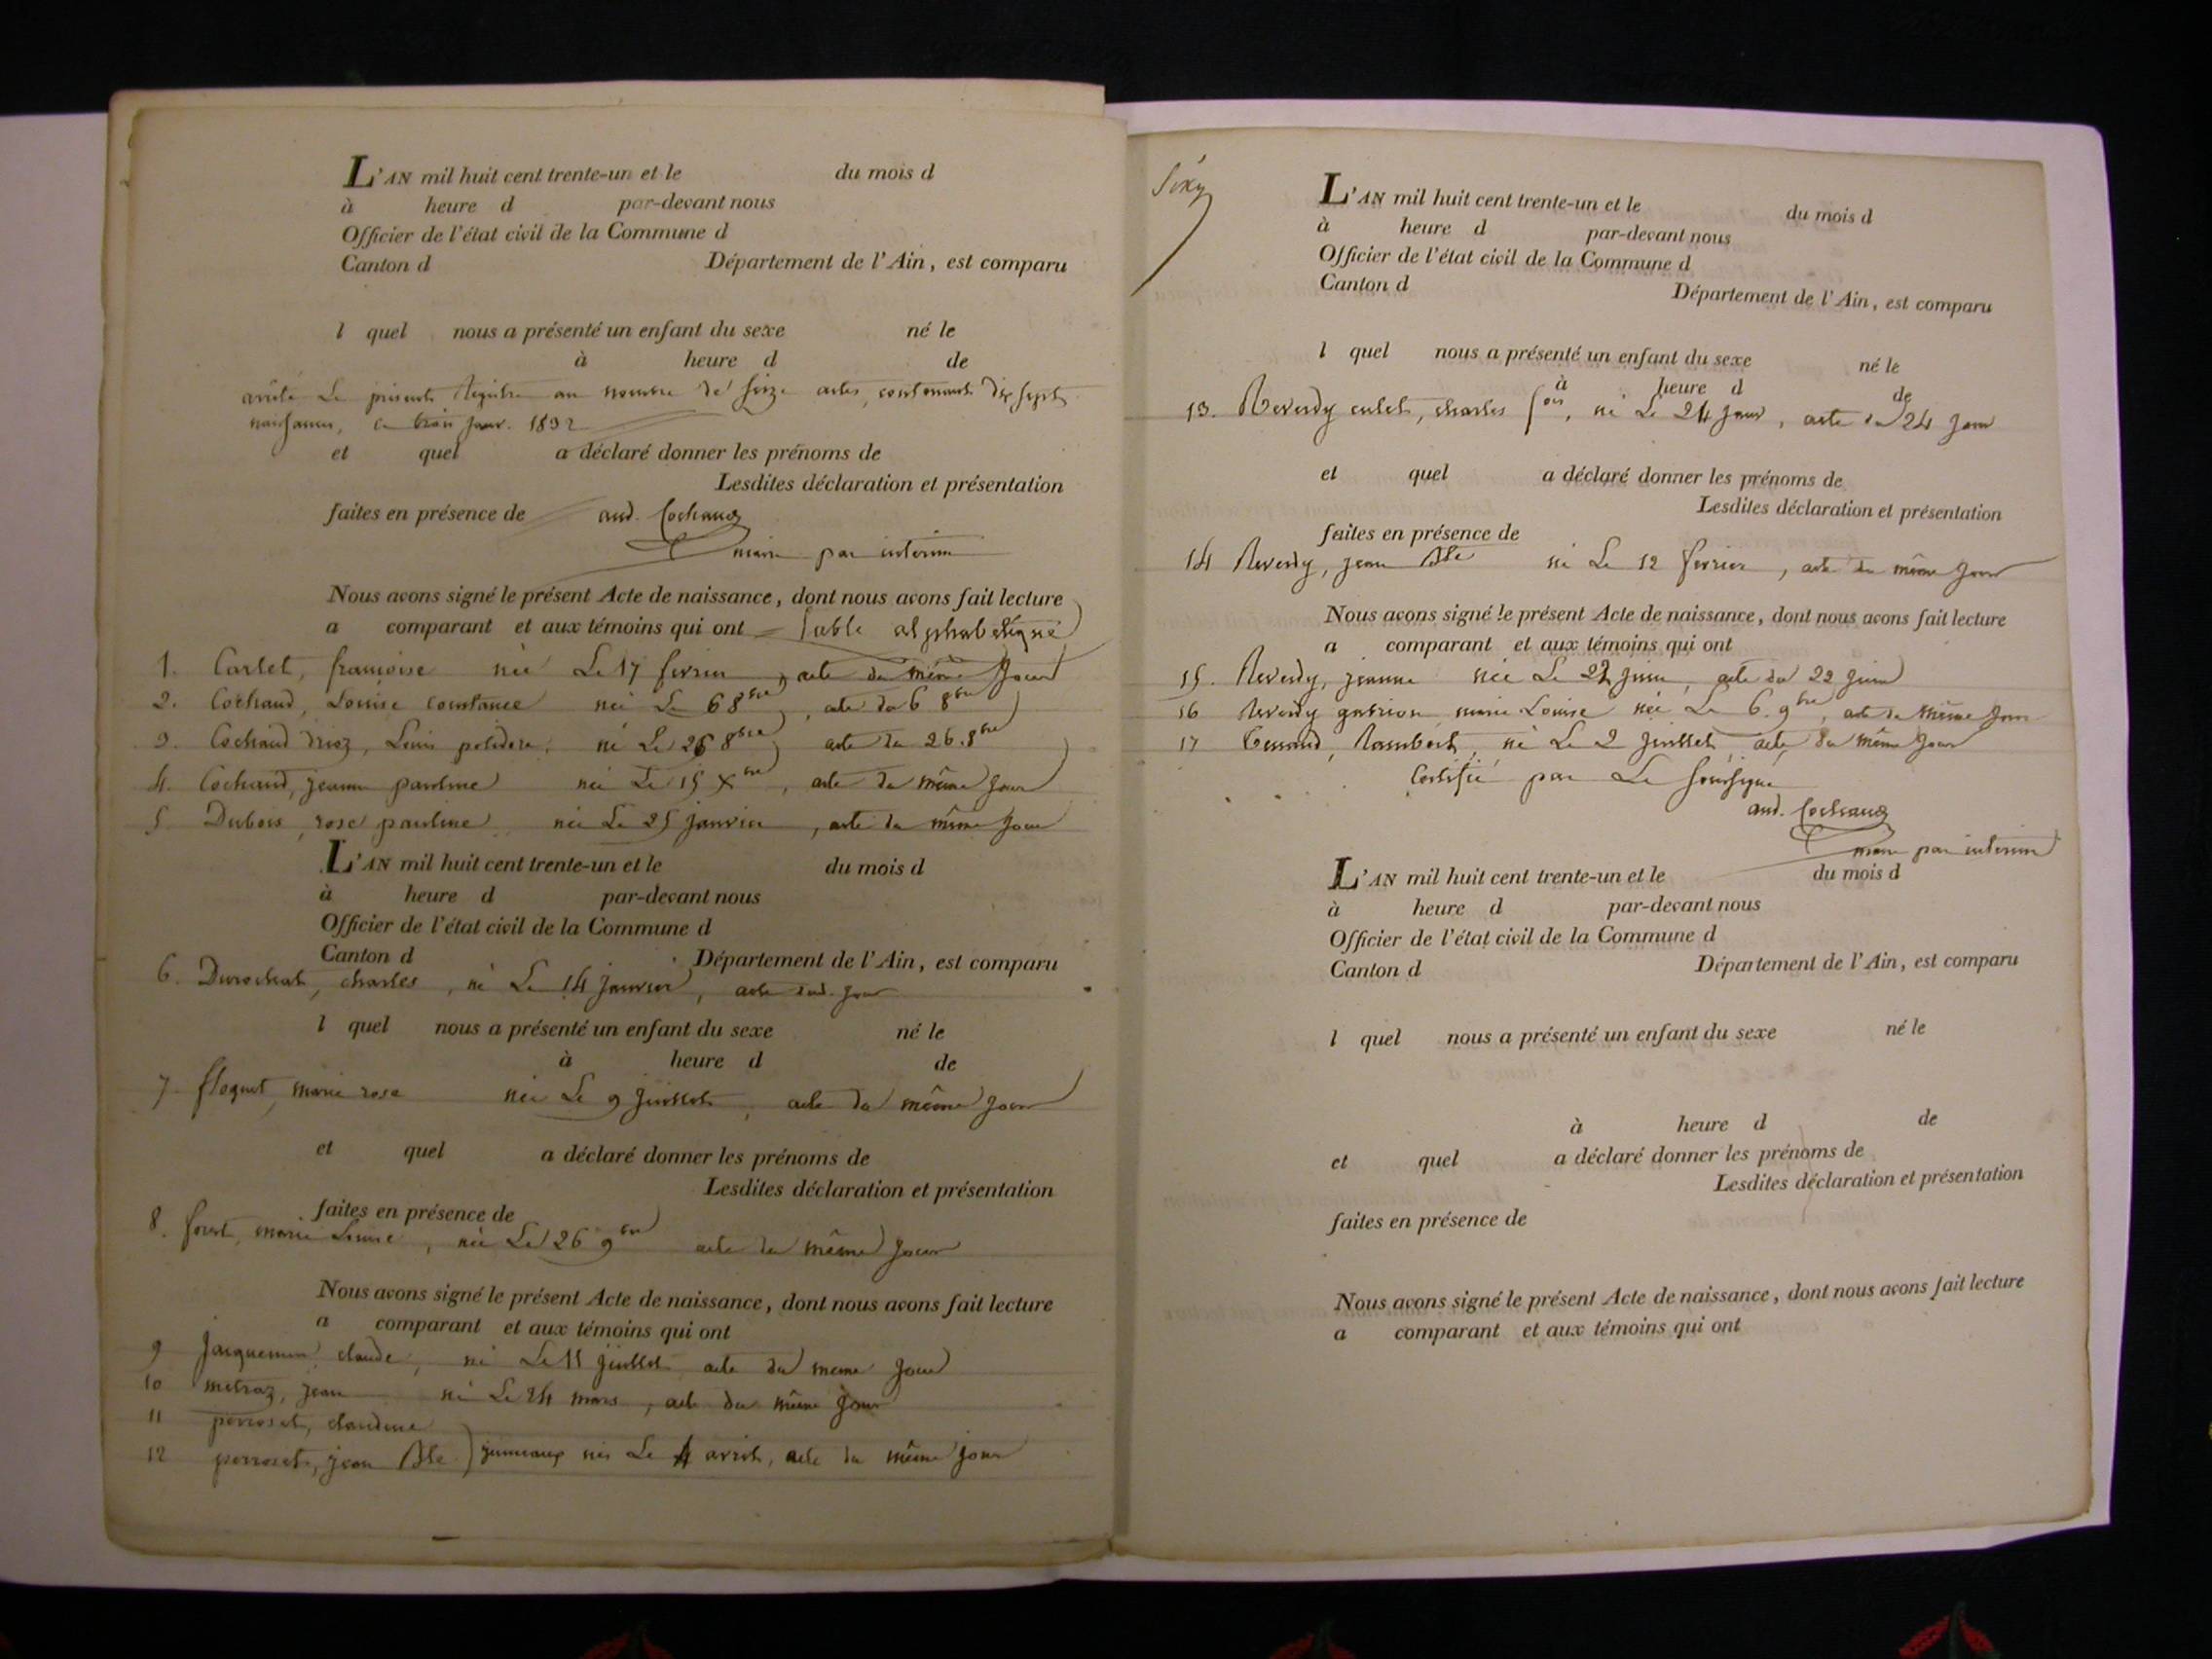 L'AN mil huit cent trente-un et le du mois d
à heure d par-devant nous
Officier de l'état civil de la Commune d
Canton d Département de l'Ain, est comparu
l quel nous a présenté un enfant du sexe né le
à heure d de
arrêté Le présent Registre au nombre de seize actes, contenant dix sept
naissances, ce trois janv. 1832
et quel a déclaré donner les prénoms de
Lesdites déclaration et présentation
faites en présence de and. Cochaud
maire par interim
Nous avons signé le présent Acte de naissance, dont nous avons fait lecture
a comparant et aux témoins qui ont Table alphabétique
1. Carlet, françoise née Le 17 fevrier, acte du même Jour
2. Cochaud, Louise Constance née Le 6 8bre, acte du 6 8bre
3. Cochaud Louis né Le 26 8bre, acte du 26 8bre
4. Cochaud, jeanne pauline née Le 15 Xbre, acte du même Jour
5. Dubois, rose pauline, née Le 25 janvier, acte du même Jour
L'AN mil huit cent trente-un et le du mois d
à heure d par-devant nous
Officier de l'état civil de la Commune d
Canton d Département de l'Ain, est comparu
6. Durochat, charles, né Le 14 Janvier, acte dud. Jour
l quel nous a présenté un enfant du sexe né le
à heure d de
7. floquet, marie rose née Le 9 Juillet, acte du même Jour
et quel a déclaré donner les prénoms de
Lesdites déclaration et présentation
faites en présence de
8. forest, marie Louise, née Le 26 9bre acte du même Jour
Nous avons signé le présent Acte de naissance, dont nous avons fait lecture
a comparant et aux témoins qui ont
9 Jacquemin, claude, né Le 11 Juillet acte du meme Jour
10 metraz, jean né Le 24 mars, acte du même Jour
11 perroset, claudine
12 perroset, jean Bte jumeaux nés Le 4 avril, acte du même jour
L'AN mil huit cent trente-un et le du mois d
à heure d par-devant nous
Officier de l'état civil de la Commune d
Canton d Département de l'Ain, est comparu
l quel nous a présenté un enfant du sexe né le
à heure d de
13. Reverdy culet, charles fois, né Le 24 Janv, acte du 24 Janv
et quel a déclaré donner les prénoms de
Lesdites déclaration et présentation
faites en présence de
14 Reverdy, jean Bte né Le 12 fevrier, acte du même Jour
Nous avons signé le présent Acte de naissance, dont nous avons fait lecture
a comparant et aux témoins qui ont
15. Reverdy, jeanne née Le 22 Juin, acte du 22 Juin
16 Reverdy marie Louise née Le 6. 9bre, acte du même Jour
17 né Le 2 Juillet, acte du même Jour
Certifié par Le Soussigné
and. Cochaud
maire par interim
L'AN mil huit cent trente-un et le du mois d
à heure d par-devant nous
Officier de l'état civil de la Commune d
Canton d Département de l'Ain, est comparu
l quel nous a présenté un enfant du sexe né le
à heure d de
et quel a déclaré donner les prénoms de
Lesdites déclaration et présentation
faites en présence de
Nous avons signé le présent Acte de naissance, dont nous avons fait lecture
a comparant et aux témoins qui ont